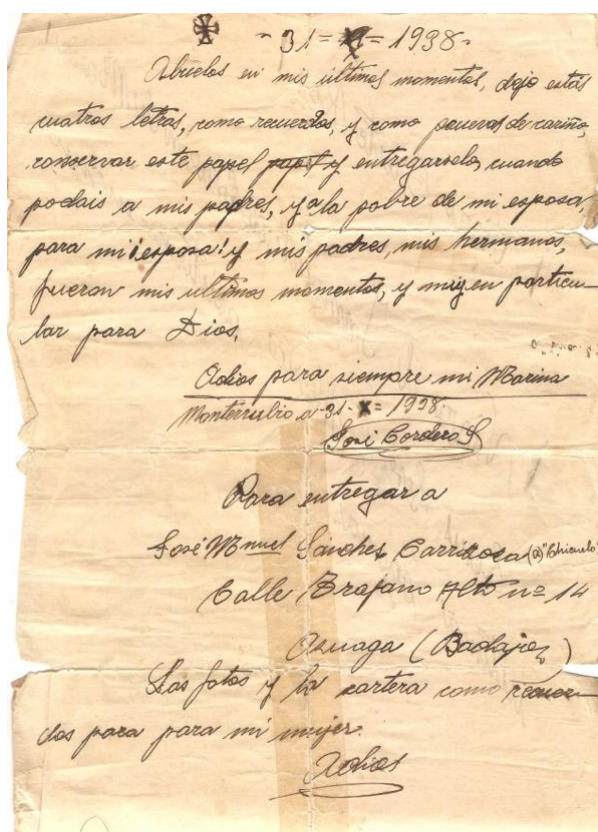 - 31 = X = 1938 -
Abuelos en mis últimos momentos, dejo estás
cuatros letras, como recuerdos, y como pruevas de cariño,
conservar este papel papel y entregarselo, cuando
podais a mis padres, y a la pobre de mi esposa,
para mi ¡esposa! y mis padres, mis hermanos,
fueron mis ultimos momentos, y muy en particu-
lar para Dios.
Adios para siempre mi Marina
Monterrubio a 31 - X = 1938
José Cordero S
Para entregar a
José Mnuel Sánches Carrizosa (a) "Chicuelo"
Calle Trajano Alto nº 14
Azuaga (Badajoz)
Las fotos y la cartera como recuer-
dos para para mi mujer.
Adios